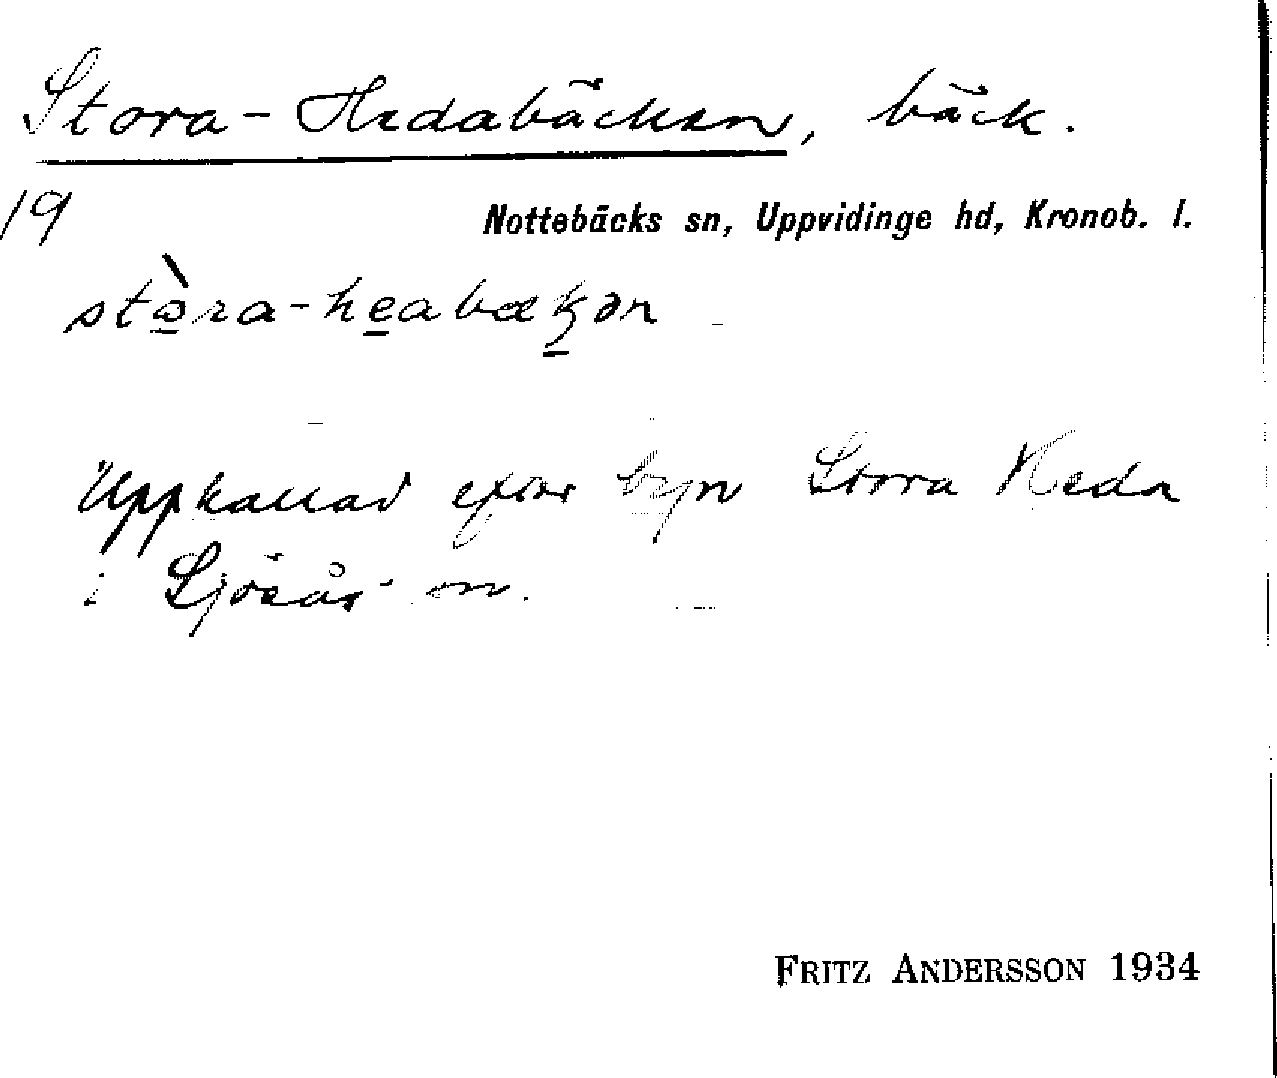 Stora-Hedabäcken, bäck.
19
Nottebäcks sn, Uppvidinge hd, Kronob. l.
stò̱ra-he̱abæḵən
Uppkallad efter byn Stora Heda
i Sjösås sn.
FRITZ ANDERSSON 1934